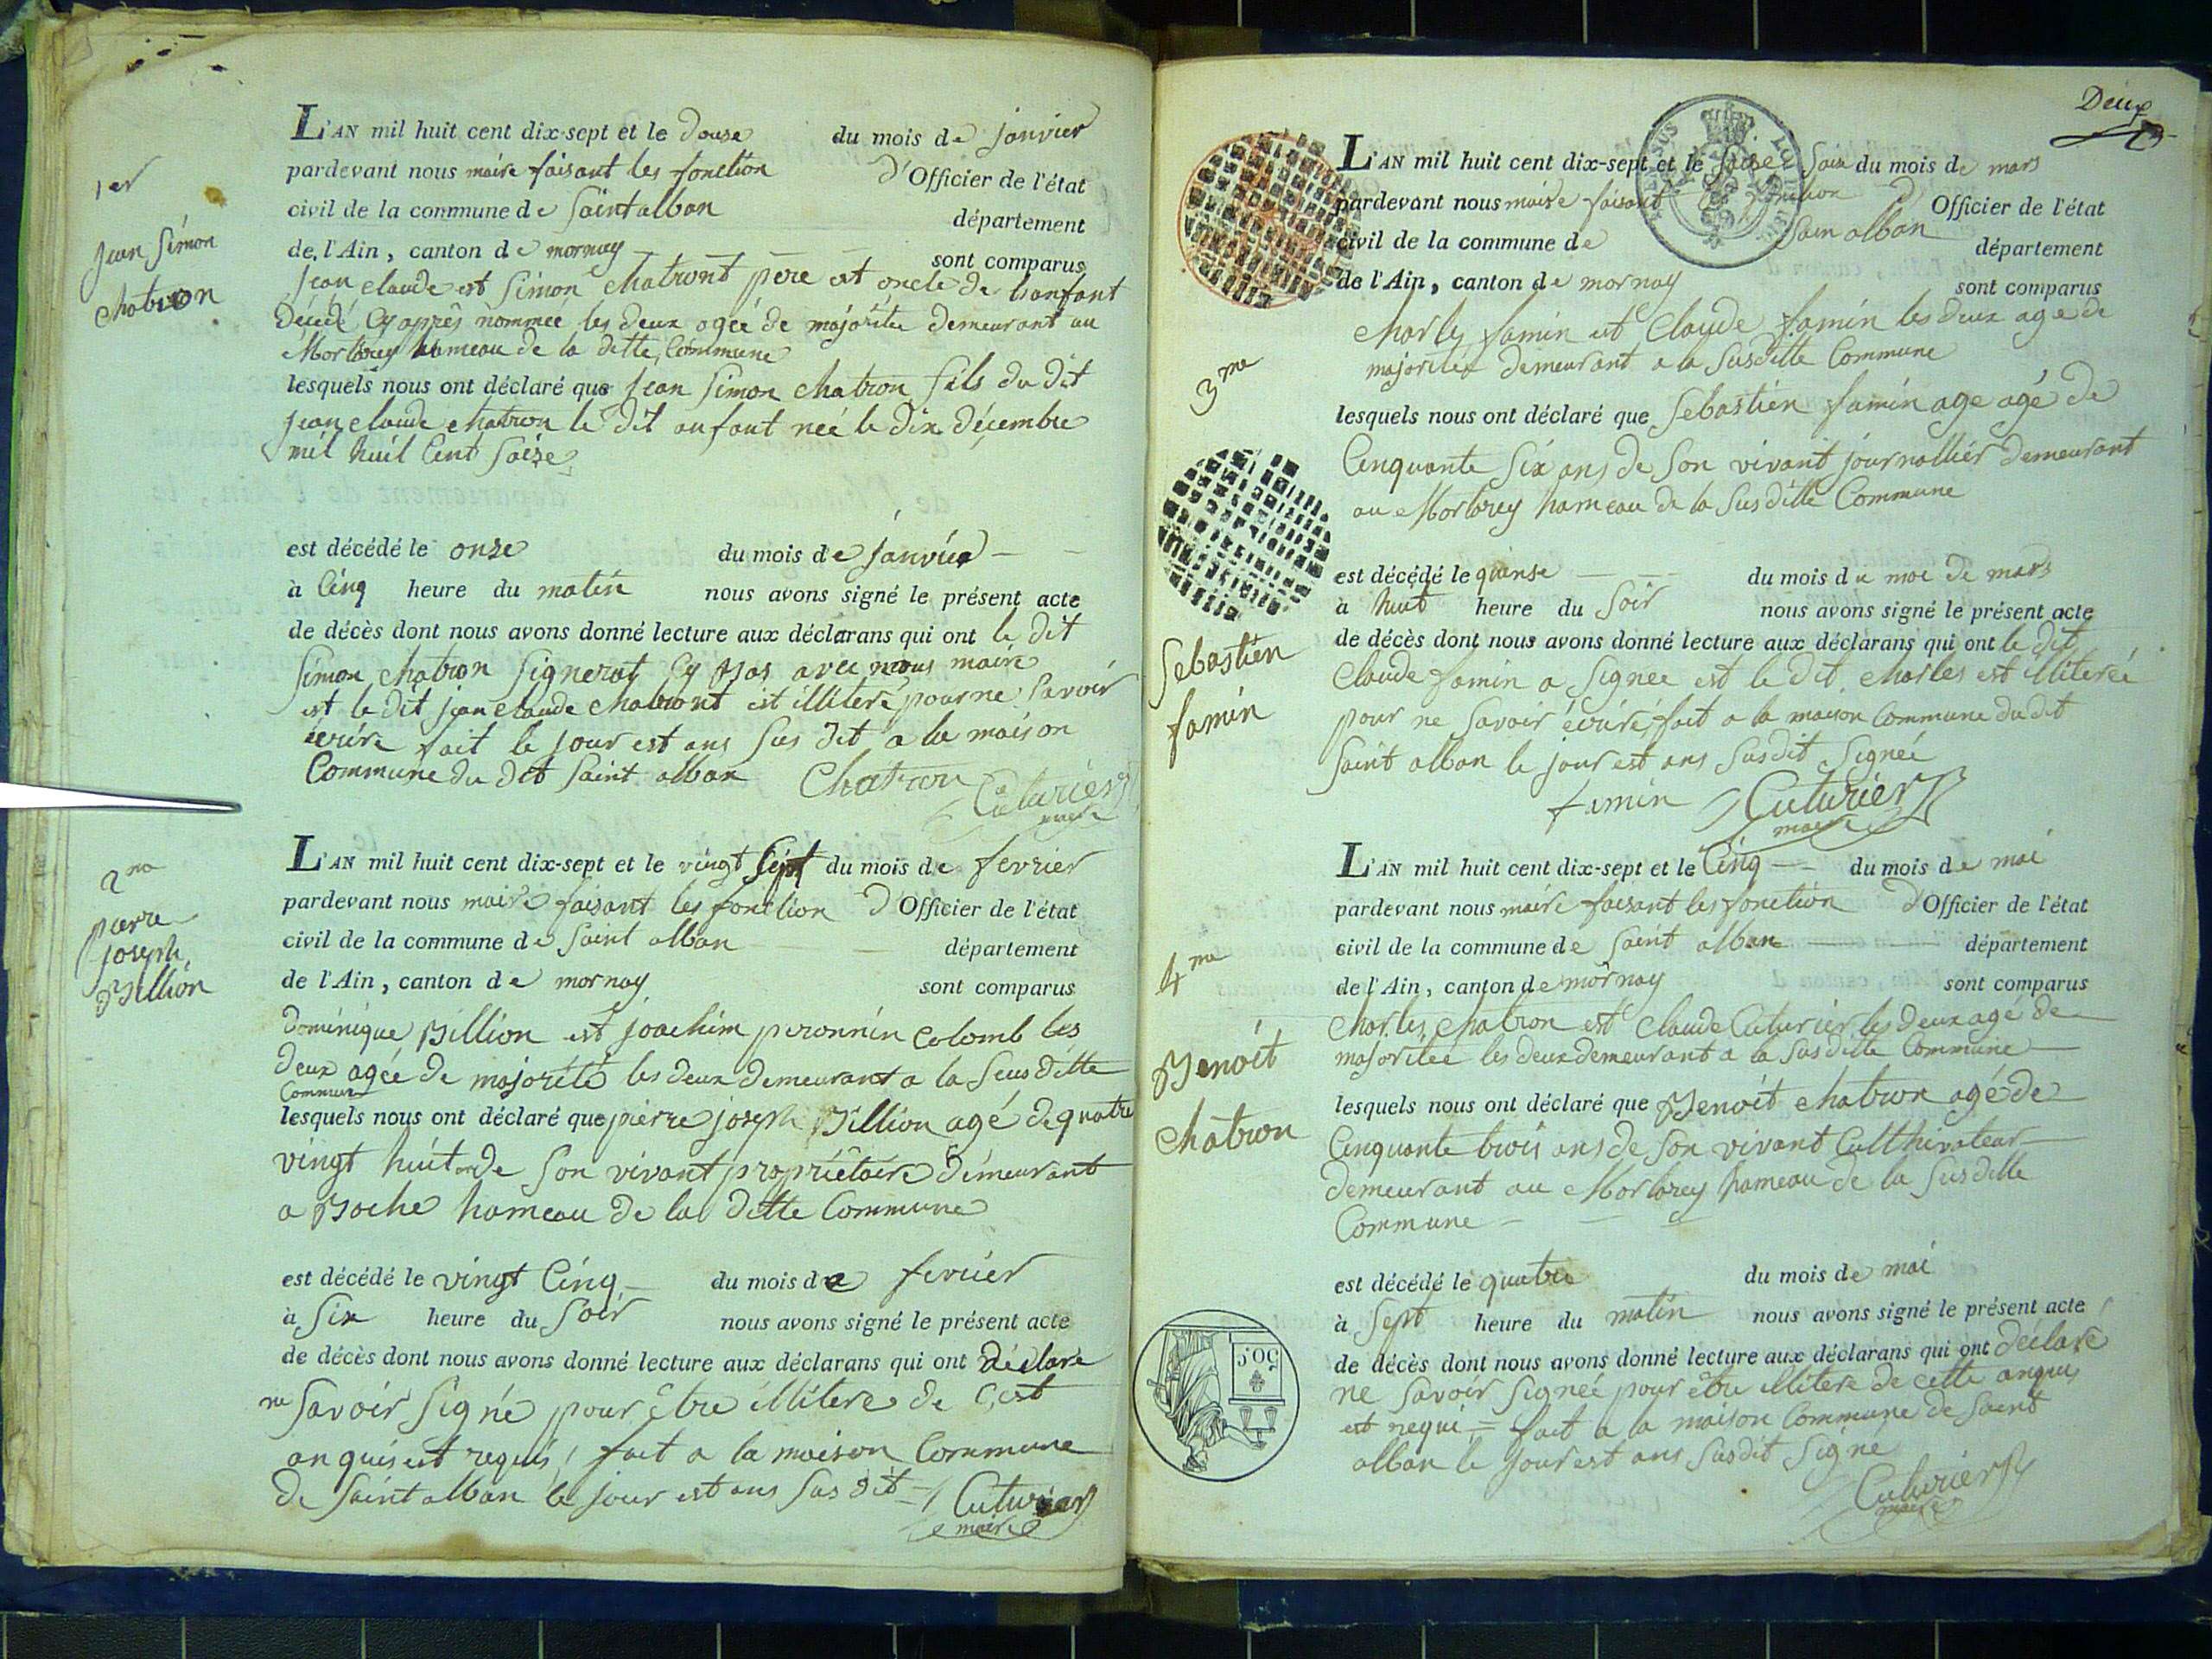 1er
Jean Simon
Chatron
L'AN mil huit cent dix-sept et le douse du mois de janvier
pardevant nous maire faisant les fonction d'Officier de l'état
civil de la commune de Saint alban département
de l'Ain, canton de mornay sont comparus
jean claude est Simon chatront pere est oncle de lanfant
décédé Cy après nommée les deux agée de majoritée demeurant au
Morbrey hameau de la ditte Commune
lesquels nous ont déclaré que jean Simon chatron fils du dit
jean claude chatron le dit anfant née le dix décembre
mil huit Cent Saize
est décédé le onze du mois de janvier
à Cinq heure du matin nous avons signé le présent acte
de décès dont nous avons donné lecture aux déclarans qui ont le dit
Simon chatron Signerat Cy bas avec nous maire
est le dit jean claude chatront est illiteré pour ne Savoir
écrire fait le jour est ans Sus dit a la maison
Commune du dit Saint alban Chatron Cuturier
maire
2me
pierre
joseph
Billion
L'AN mil huit cent dix-sept et le vingt Sept du mois de fevrier
pardevant nous maire faisant les fonction d'Officier de l'état
civil de la commune de Saint alban département
de l'Ain, canton de mornay sont comparus
dominique Billion est joachim peronnin Colomb les
deux agée de majorité les deux demeurant a la Susditte
Commune
lesquels nous ont déclaré que pierre joseph Billion agé de quatre
vingt huit ans de Son vivant propriétaire demeurant
a Boche hameau de la ditte Commune
est décédé le vingt Cinq du mois de fevrier
à Six heure du Soir nous avons signé le présent acte
de décès dont nous avons donné lecture aux déclarans qui ont déclare
ne Savoir Signé pour être illitere de Cest
anquis est requis fait a la maison Commune
de Saint alban le jour est ans Sus dit Cuturier
maire
Deux
3me
Sebastien
famin
L'AN mil huit cent dix-sept et le du mois de mars
pardevant nous maire faisant Officier de l'état
civil de la commune de Sain alban département
de l'Ain, canton de mornay sont comparus
Charles famin est Claude famin les deux age de
majoritée demeurant a la Susditte Commune
lesquels nous ont déclaré que Sebastien famin age agé de
Cinquante Six ans de Son vivant journallier demeurant
au Morbrey hameau de la Susditte Commune
est décédé le quinse du mois du moi de mars
à huit heure du Soir nous avons signé le présent acte
de décès dont nous avons donné lecture aux déclarans qui ont le dit
Claude famin a Signee est le dit Charles est illiterée
pour ne Savoir écrire fait a la maison Commune dudit
Saint alban le jour est ans Susdit Signée
famin Cuturier
maire
4me
Benoit
chatron
L'AN mil huit cent dix-sept et le Cinq du mois de mai
pardevant nous maire faisant les fonction d'Officier de l'état
civil de la commune de Saint alban département
de l'Ain, canton de mornay sont comparus
Charles Chatron est Claude Cuturier les deux agé de
majoritée les deux demeurant a la Susditte Commune
lesquels nous ont déclaré que Benoit chatron agé de
Cinquante trois ans de Son vivant Culthivateur
demeurant au Morbrey hameau de la Susditte
Commune
est décédé le quatre du mois de mai
à Sept heure du matin nous avons signé le présent acte
de décès dont nous avons donné lecture aux déclarans qui ont déclaré
ne Savoir Signeé pour être illitere de cette anquis
est requi fait a la maison Commune de Saint
alban le jour est ans Susdit Signé
Cuturier
maire
50C